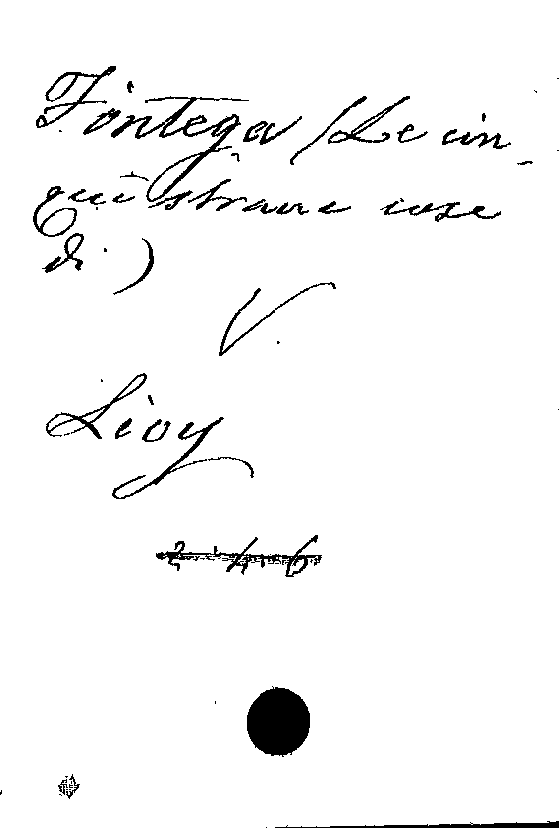 Fontega (Le cin-
que strane cose
di)
V.
Lioy
2.4.6